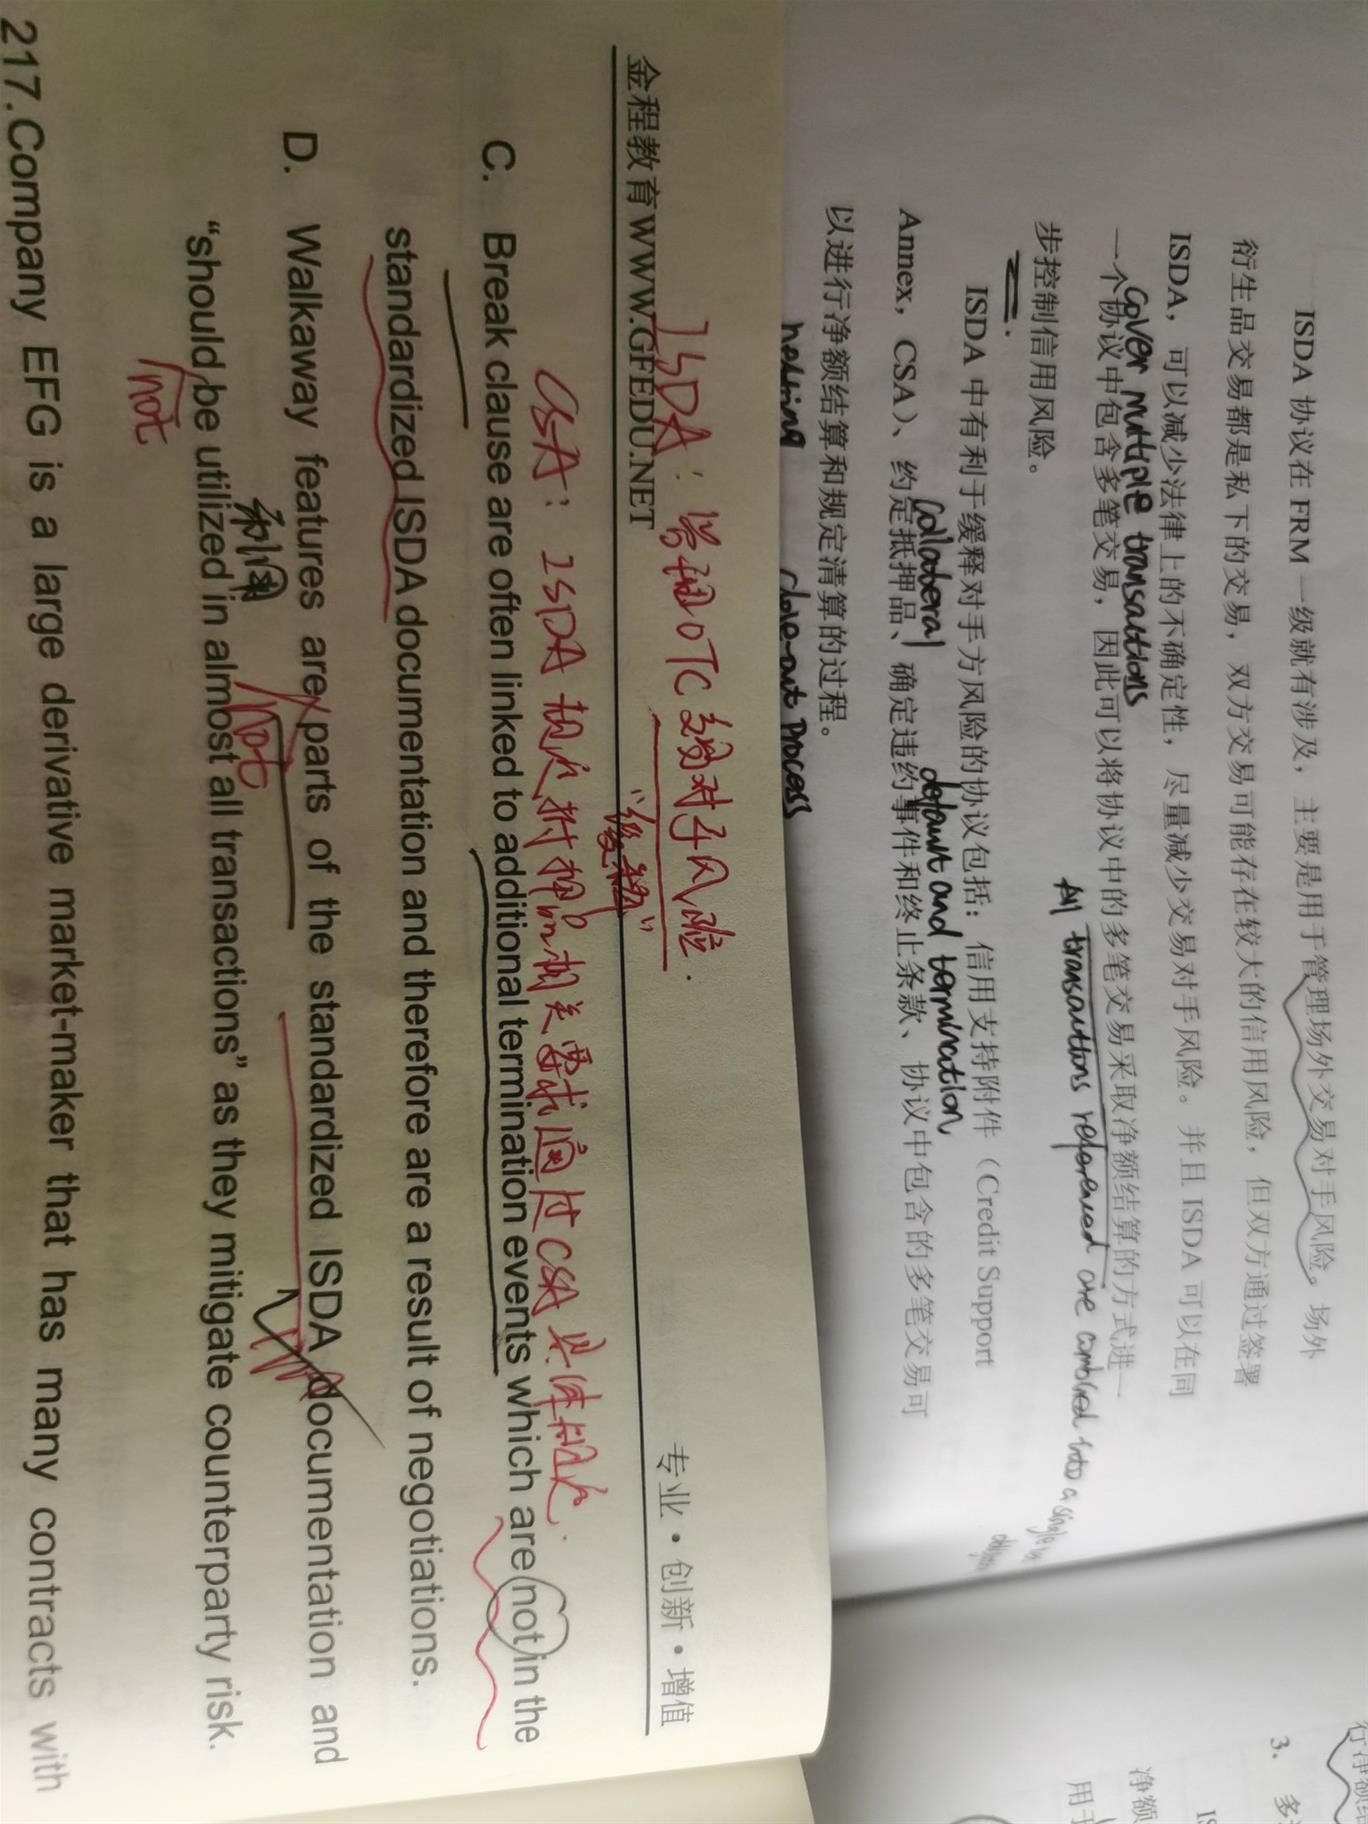 ISDA 协议在 FRM 一级就有涉及，主要是用于管理场外交易对手风险。场外
衍生品交易都是私下的交易，双方交易可能存在较大的信用风险，但双方通过签署
ISDA，可以减少法律上的不确定性，尽量减少交易对手风险。并且 ISDA 可以在同
cover multiple transactions
一个协议中包含多笔交易，因此可以将协议中的多笔交易采取净额结算的方式进一
All transactions referenced are combined into a single
步控制信用风险。
ISDA 中有利于缓释对手方风险的协议包括：信用支持附件（Credit Support
collateral default and termination
Annex，CSA）、约定抵押品、确定违约事件和终止条款、协议中包含的多笔交易可
以进行净额结算和规定清算的过程。
netting close-out process
3. 多
净额
用于
金程教育WWW.GFEDU.NET 专业·创新·增值
ISDA：管理OTC交易对手风险.
“缓释”
CSA：ISDA 规定抵押品相关要求通过CSA 具体规定.
C. Break clause are often linked to additional termination events which are not in the
standardized ISDA documentation and therefore are a result of negotiations.
D. Walkaway features are parts of the standardized ISDA documentation and
not
“should be utilized in almost all transactions” as they mitigate counterparty risk.
not
217.Company EFG is a large derivative market-maker that has many contracts with